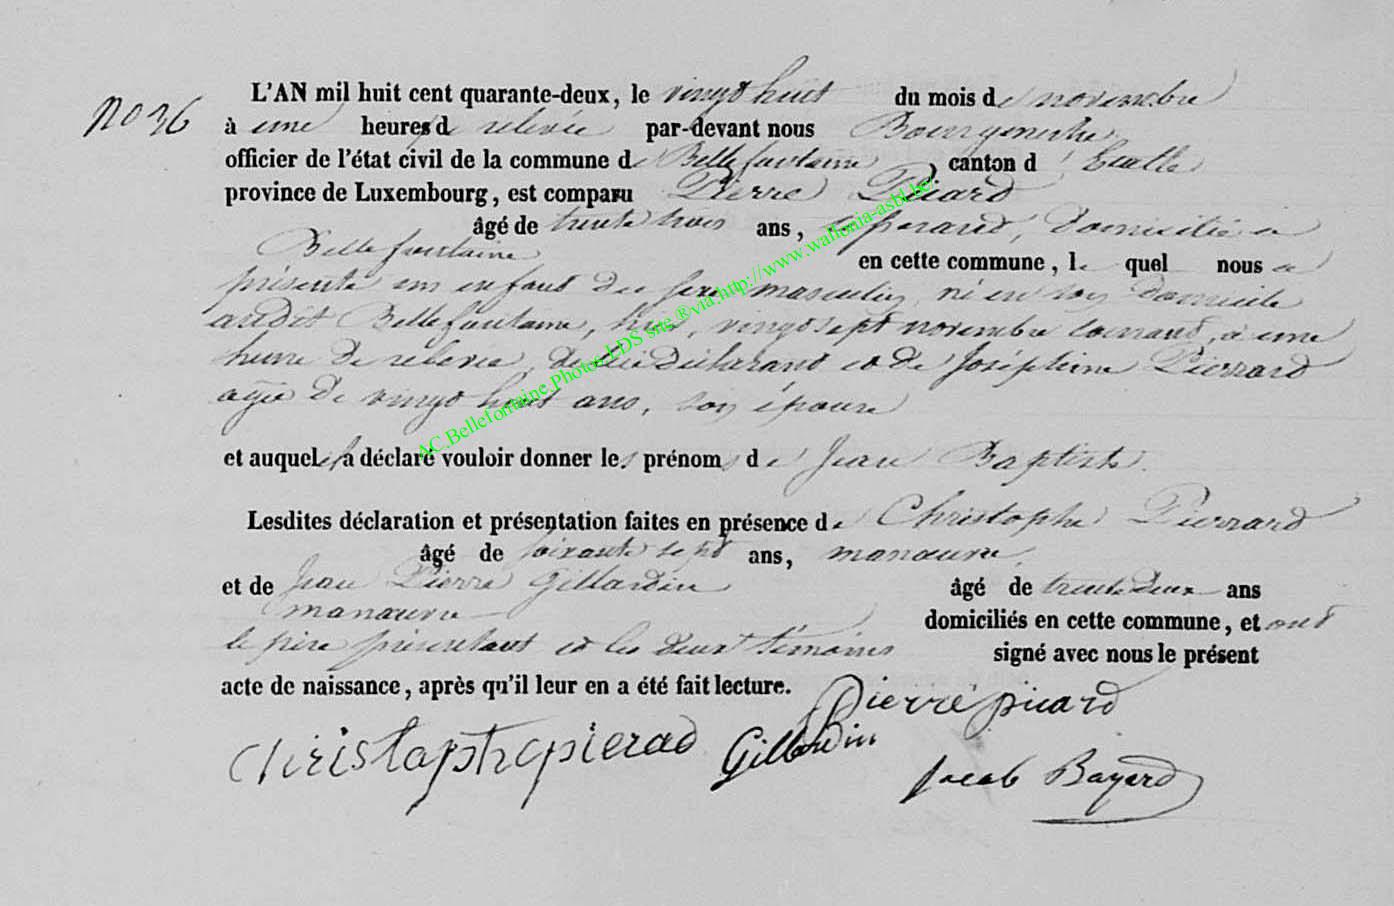 No 36
L'AN mil huit cent quarante-deux, le vingt huit du mois de novembre
à une heure de relevée par-devant nous Bourgmestre,
officier de l'état civil de la commune de Bellefontaine, canton d'Etalle
province de Luxembourg, est comparu Pierre Picard
âgé de trente trois ans, domicilié à
Bellefontaine en cette commune, lequel nous a
présenté un enfant du sexe masculin, né en son domicile
audit Bellefontaine, hier, vingt sept novembre courant, à une
heure de relevée, de lui Déclarant et de Joséphine Pierrard
agée de vingt huit ans, son épouse
et auquel il a déclaré vouloir donner les prénoms de Jean Baptiste.
Lesdites déclaration et présentation faites en présence de Christophe Pierrard
âgé de soixante sept ans, manœuvre,
et de Jean Pierre Gillardin âgé de trente deux ans
manœuvre domiciliés en cette commune, et ont
le père présentant et les deux témoins signé avec nous le présent
acte de naissance, après qu'il leur en a été fait lecture.
Pierre picard
Christophe pierad Gillardin
Jacob Bayard
AC.Bellefontaine.Photos LDS site ® via http://www.wallonia-asbl.be/